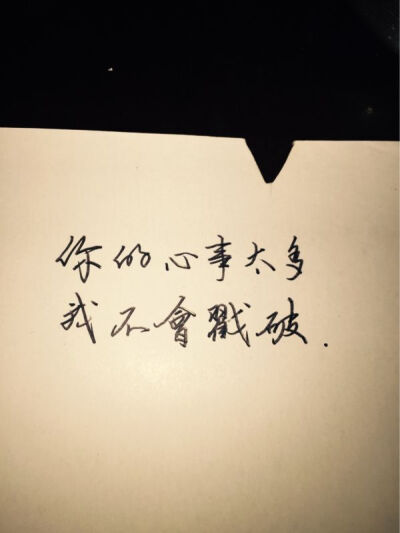 你的心事太多
我不會戳破.